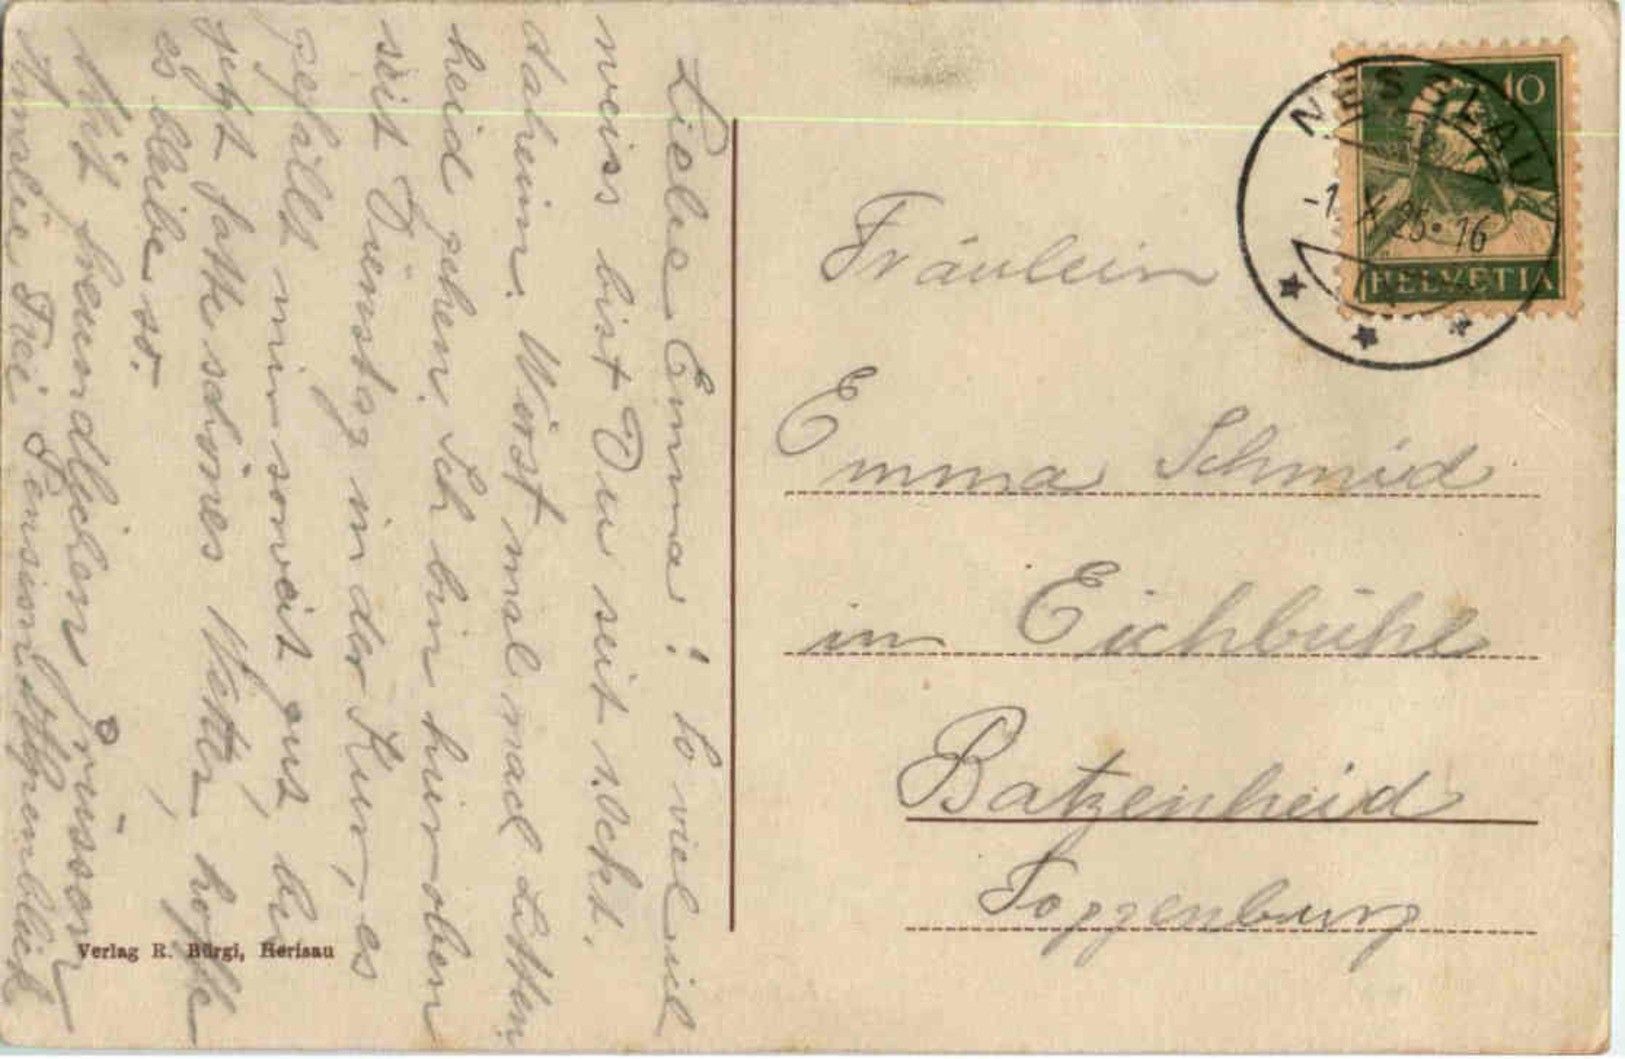 Liebe Emma! So viel ich
weiss bist Du seit
daheim. Wirst mal nach Litten
heid gehen. Ich bin hier oben
seit Dienstag in der Kur, es
gefällt mir soweit gut, bis
jetzt hatte schönes Wetter, hoffe
es bleibe so.
Mit freundlichen Grüssen
Amalie Frei Pension Alpenblick
Verlag R. Bürgi, Herisau
NESSLAU
-1. X. 25. 16
10
HELVETIA
Fräulein
Emma Schmid
im Eichbühl
Batzenheid
Toggenburg